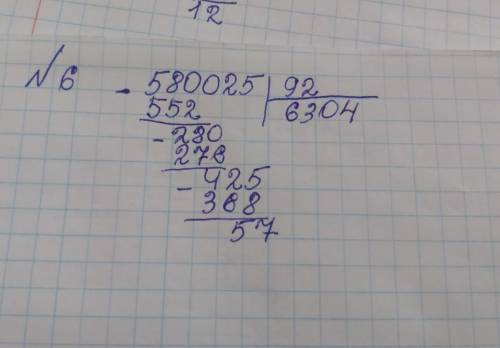 12
№6 - 580025 | 92
552 6304
- 280
276
- 425
368
57